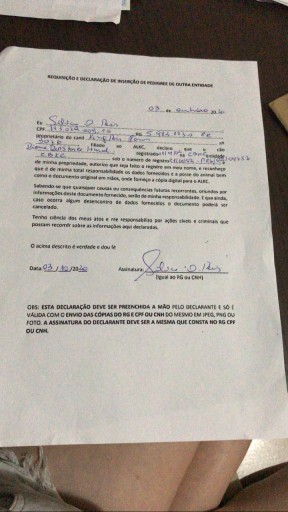 REQUISIÇÃO E DECLARAÇÃO DE ISENÇÃO DE PEDIGREE DE OUTRA ENTIDADE
03 de outubro de 20
Eu
CPF RG
proprietário do canil nº
filiado ao ALKC, declaro que o cão
registrado entidade
sob o número de registro
de minha propriedade, autorizo que seja feito o registro em meu nome, e reconheço
que é de minha total responsabilidade os dados fornecidos e a posse do animal bem
como o documento original em mãos, onde forneço a cópia digital para o ALKC.
Sabendo-se que quaisquer causas ou consequências futuras recorrentes, oriundos por
informações deste documento fornecido, serão de minha responsabilidade. E que ainda,
caso ocorra algum desencontro de dados fornecidos o documento poderá ser
cancelado.
Tenho ciência dos meus atos e me responsabilizo por ações cíveis e criminais que
possam recorrer sobre as informações aqui declaradas.
O acima descrito é verdade e dou fé
Data: 03/10/2020 Assinatura:
(Igual ao RG ou CNH)
OBS: ESTA DECLARAÇÃO DEVE SER PREENCHIDA A MÃO PELO DECLARANTE E SÓ É
VÁLIDA COM O ENVIO DAS CÓPIAS DO RG E CPF OU CNH DO MESMO EM JPEG, PNG OU
FOTO. A ASSINATURA DO DECLARANTE DEVE SER A MESMA QUE CONSTA NO RG CPF
OU CNH.